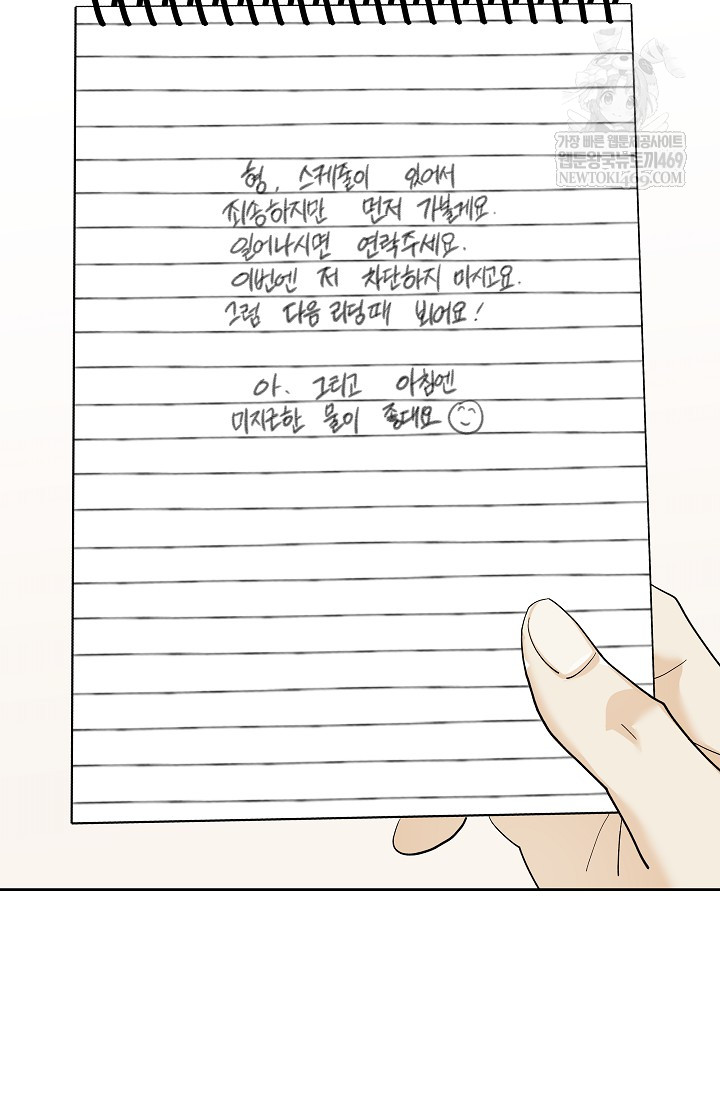 가장 빠른 웹툰제공사이트
웹툰왕국뉴토끼469
NEWTOKI469.COM
형, 스케줄이 있어서
죄송하지만 먼저 가볼게요.
일어나시면 연락주세요.
이번엔 저 차단하지 마시고요.
그럼 다음 리딩때 뵈어요!
아. 그리고 아침엔
미지근한 물이 좋대요